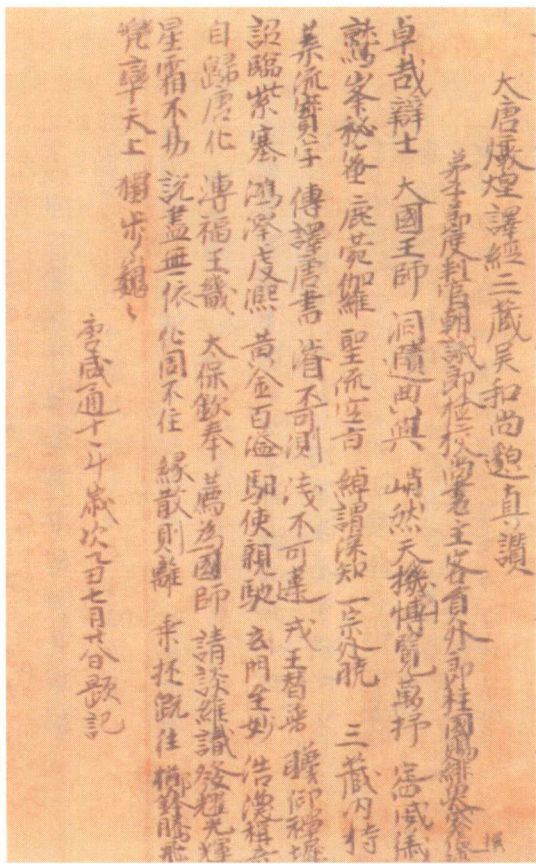 大唐燉煌譯經三藏吳和尚邈真讚
弟子節度判官朝議郎檢校尚書主客員外郎柱國賜緋魚袋 撰
卓哉辯士 大國王師 洞賾幽奧 峭然天機 博覽萬抒 容威儀
鷲峯祕密 鹿菀伽維 聖流空旨 綽謂深知 一宗外曉 三藏內持
葉流寶字 傳譯唐書 濬不可測 淺不可違 戎王替普 瞻仰禪墀
詔臨紫塞 鴻澤虔熙 黃金百溢 馹使親馳 玄門至妙 浩
自歸唐化 溥福王畿 太保欽奉 薦為國師 請談維識 發耀光輝
星霜不易 說盡無依 化周不住 緣散則離 乘抔既往 擲錫騰飛
兜率天上 獨步巍〻
唐咸通十年歲次乙丑七月 題記